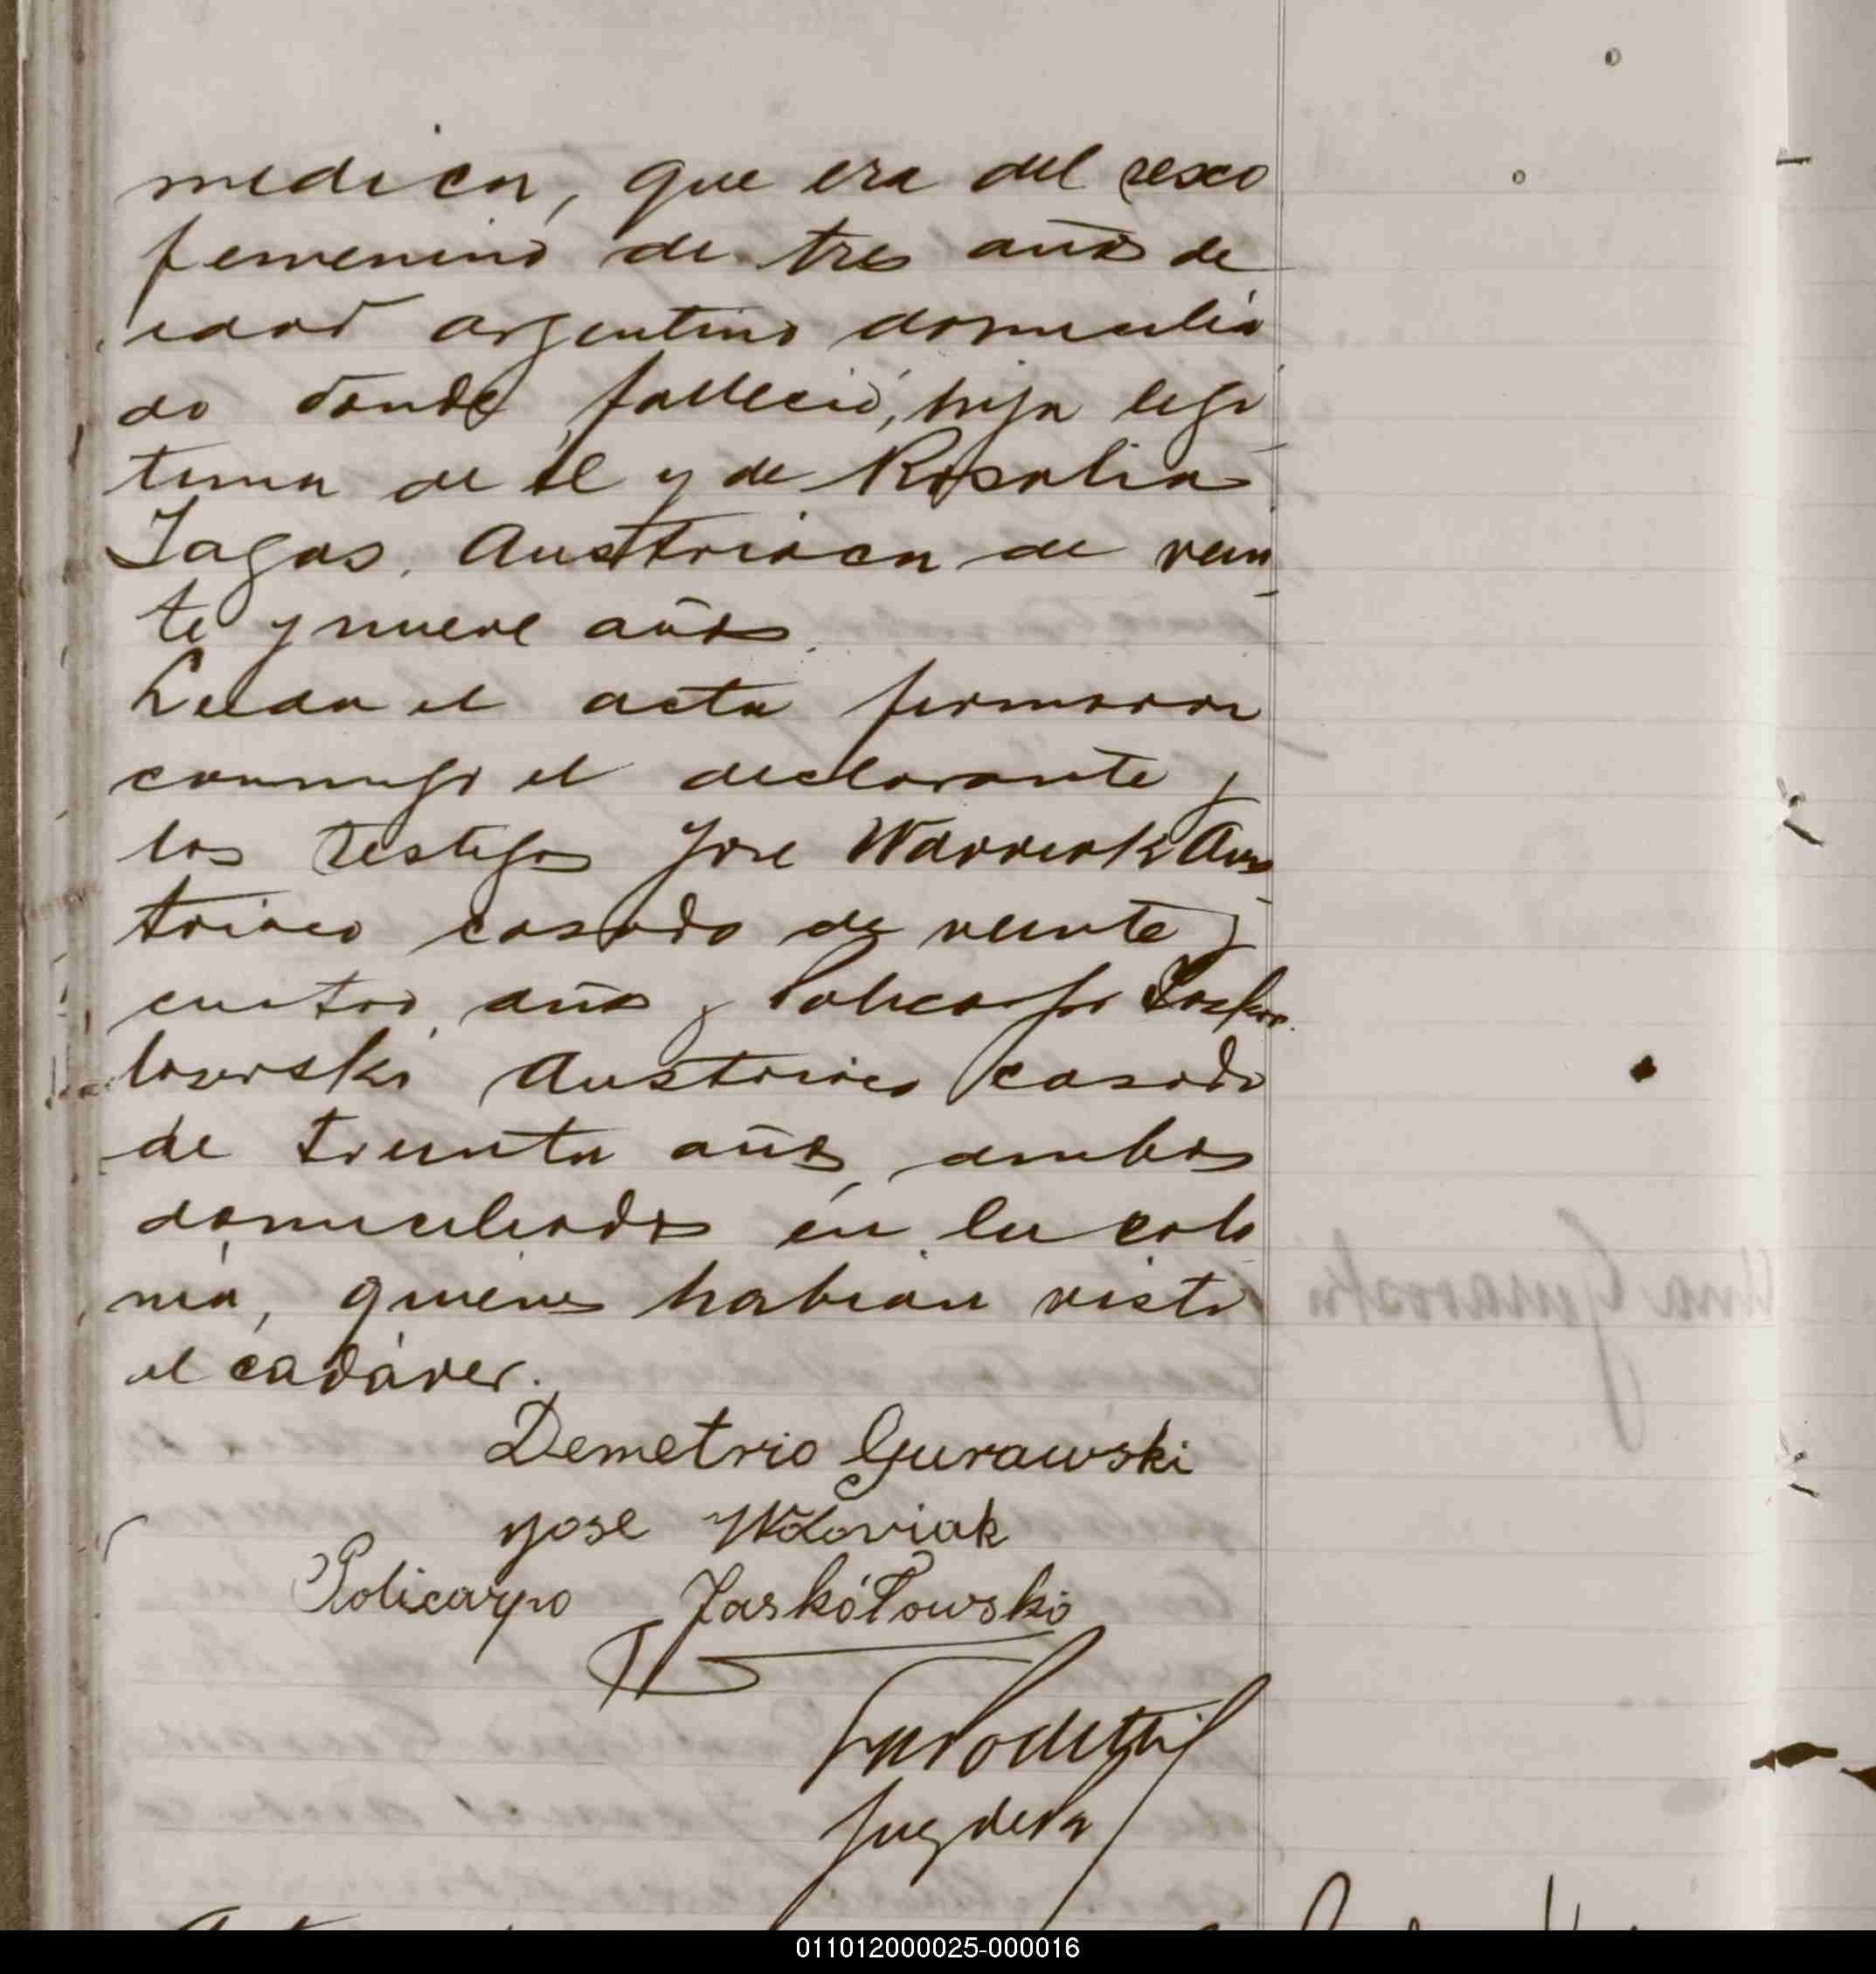 medica, que era del sexo
femenino de tres años de
edad argentino domicilia
do donde falleció, hija legi
tima de el y de Rosalia
Jagas. Austriaca de vein
te y nueve años.
Leida el acta firmaron
conmigo el declarante y
los testigos Jose Warreok Aus
triaco casado de veinte y
cuatro años y Policarpo Jasko
lowski Austriaco casado
de treinta años, ambos
domiciliados en la colo
nia, quienes habian visto
el cadáver.
Demetrio Gurawski
Jose Wdoviak
Policarpo Jaskółowski
Juez de Pa
011012000025-000016